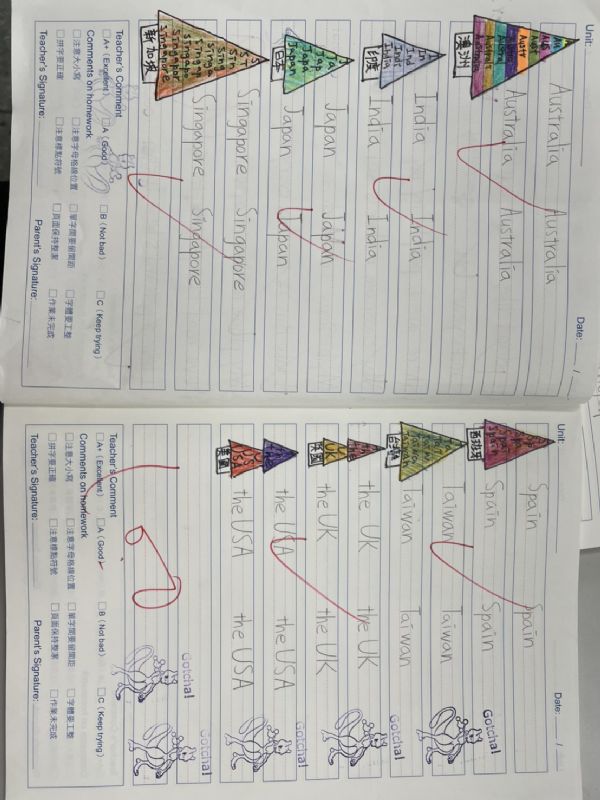 Unit:
Date: / 
Australia Australia
Australia Australia
澳洲
In
Indi
India
India India
India India
印度
Jap
Japa
Japan
Japan Japan
Japan Japan
日本
Sin
Sing
Singa
Singap
Singapo
Singapor
Singapore
Singapore Singapore
Singapore Singapore
新加坡
Teacher's Comment
□A+ (Excellent) □A (Good) □B (Not bad) □C (Keep trying)
Comments on homework
□注意大小寫 □注意字母格線位置 □單字間要留間距 □字體要工整
□拼字要正確 □注意標點符號 □頁面保持整潔 □作業未完成
Teacher's Signature: Parent's Signature:
Unit:
Date: /
Spain Spain
Spain Spain
西班牙
Gotcha!
Taiwan Taiwan
Taiwan Taiwan
台灣
Gotcha!
the UK the UK
the UK the UK
英國
Gotcha!
the USA the USA
the USA the USA
美國
Gotcha!
Gotcha!
Teacher's Comment
□A+ (Excellent) □A (Good) □B (Not bad) □C (Keep trying)
Comments on homework
□注意大小寫 □注意字母格線位置 □單字間要留間距 □字體要工整
□拼字要正確 □注意標點符號 □頁面保持整潔 □作業未完成
Teacher's Signature: Parent's Signature: